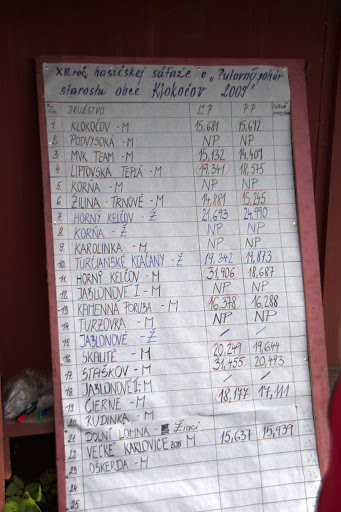 XVI. roč. hasičskej súťaže o „Putovný pohár
starostu obce Klokočov 2009"
DRUŽSTVO ĽP PP
1. KLOKOČOV - M 15,681 15,692
2. PODVYSOKÁ - M NP NP
3. MVK TEAM - M 15,132 14,409
4. LIPTOVSKÁ TEPLÁ - M 19,341 18,575
5. KORŇA - M NP NP
6. ŽILINA - TRNOVÉ - M 14,881 15,245
7. HORNÝ KELČOV - Ž 21,693 24,990
8. KORŇA - Ž NP NP
9. KAROLINKA - M NP NP
10. TURČIANSKE KĽAČANY - Ž 19,342 19,873
11. HORNÝ KELČOV - M 31,906 18,687
12. JABLONOVÉ I - M NP NP
13. KAMENNÁ PORUBA - M 16,378 16,288
14. TURZOVKA - M NP NP
15. JABLONOVÉ - Ž / /
16. SKALITÉ - M 20,249 19,644
17. STAŠKOV - M 31,455 20,493
18. JABLONOVÉ II - M / /
19. ČIERNE - M 18,147 17,111
20. RUDINKA - M
21. DOLNÍ LOMNÁ - Žiaci
22. VEĽKÉ KARLOVICE - M 15,637 15,939
23. OŠKERDA - M
24
25